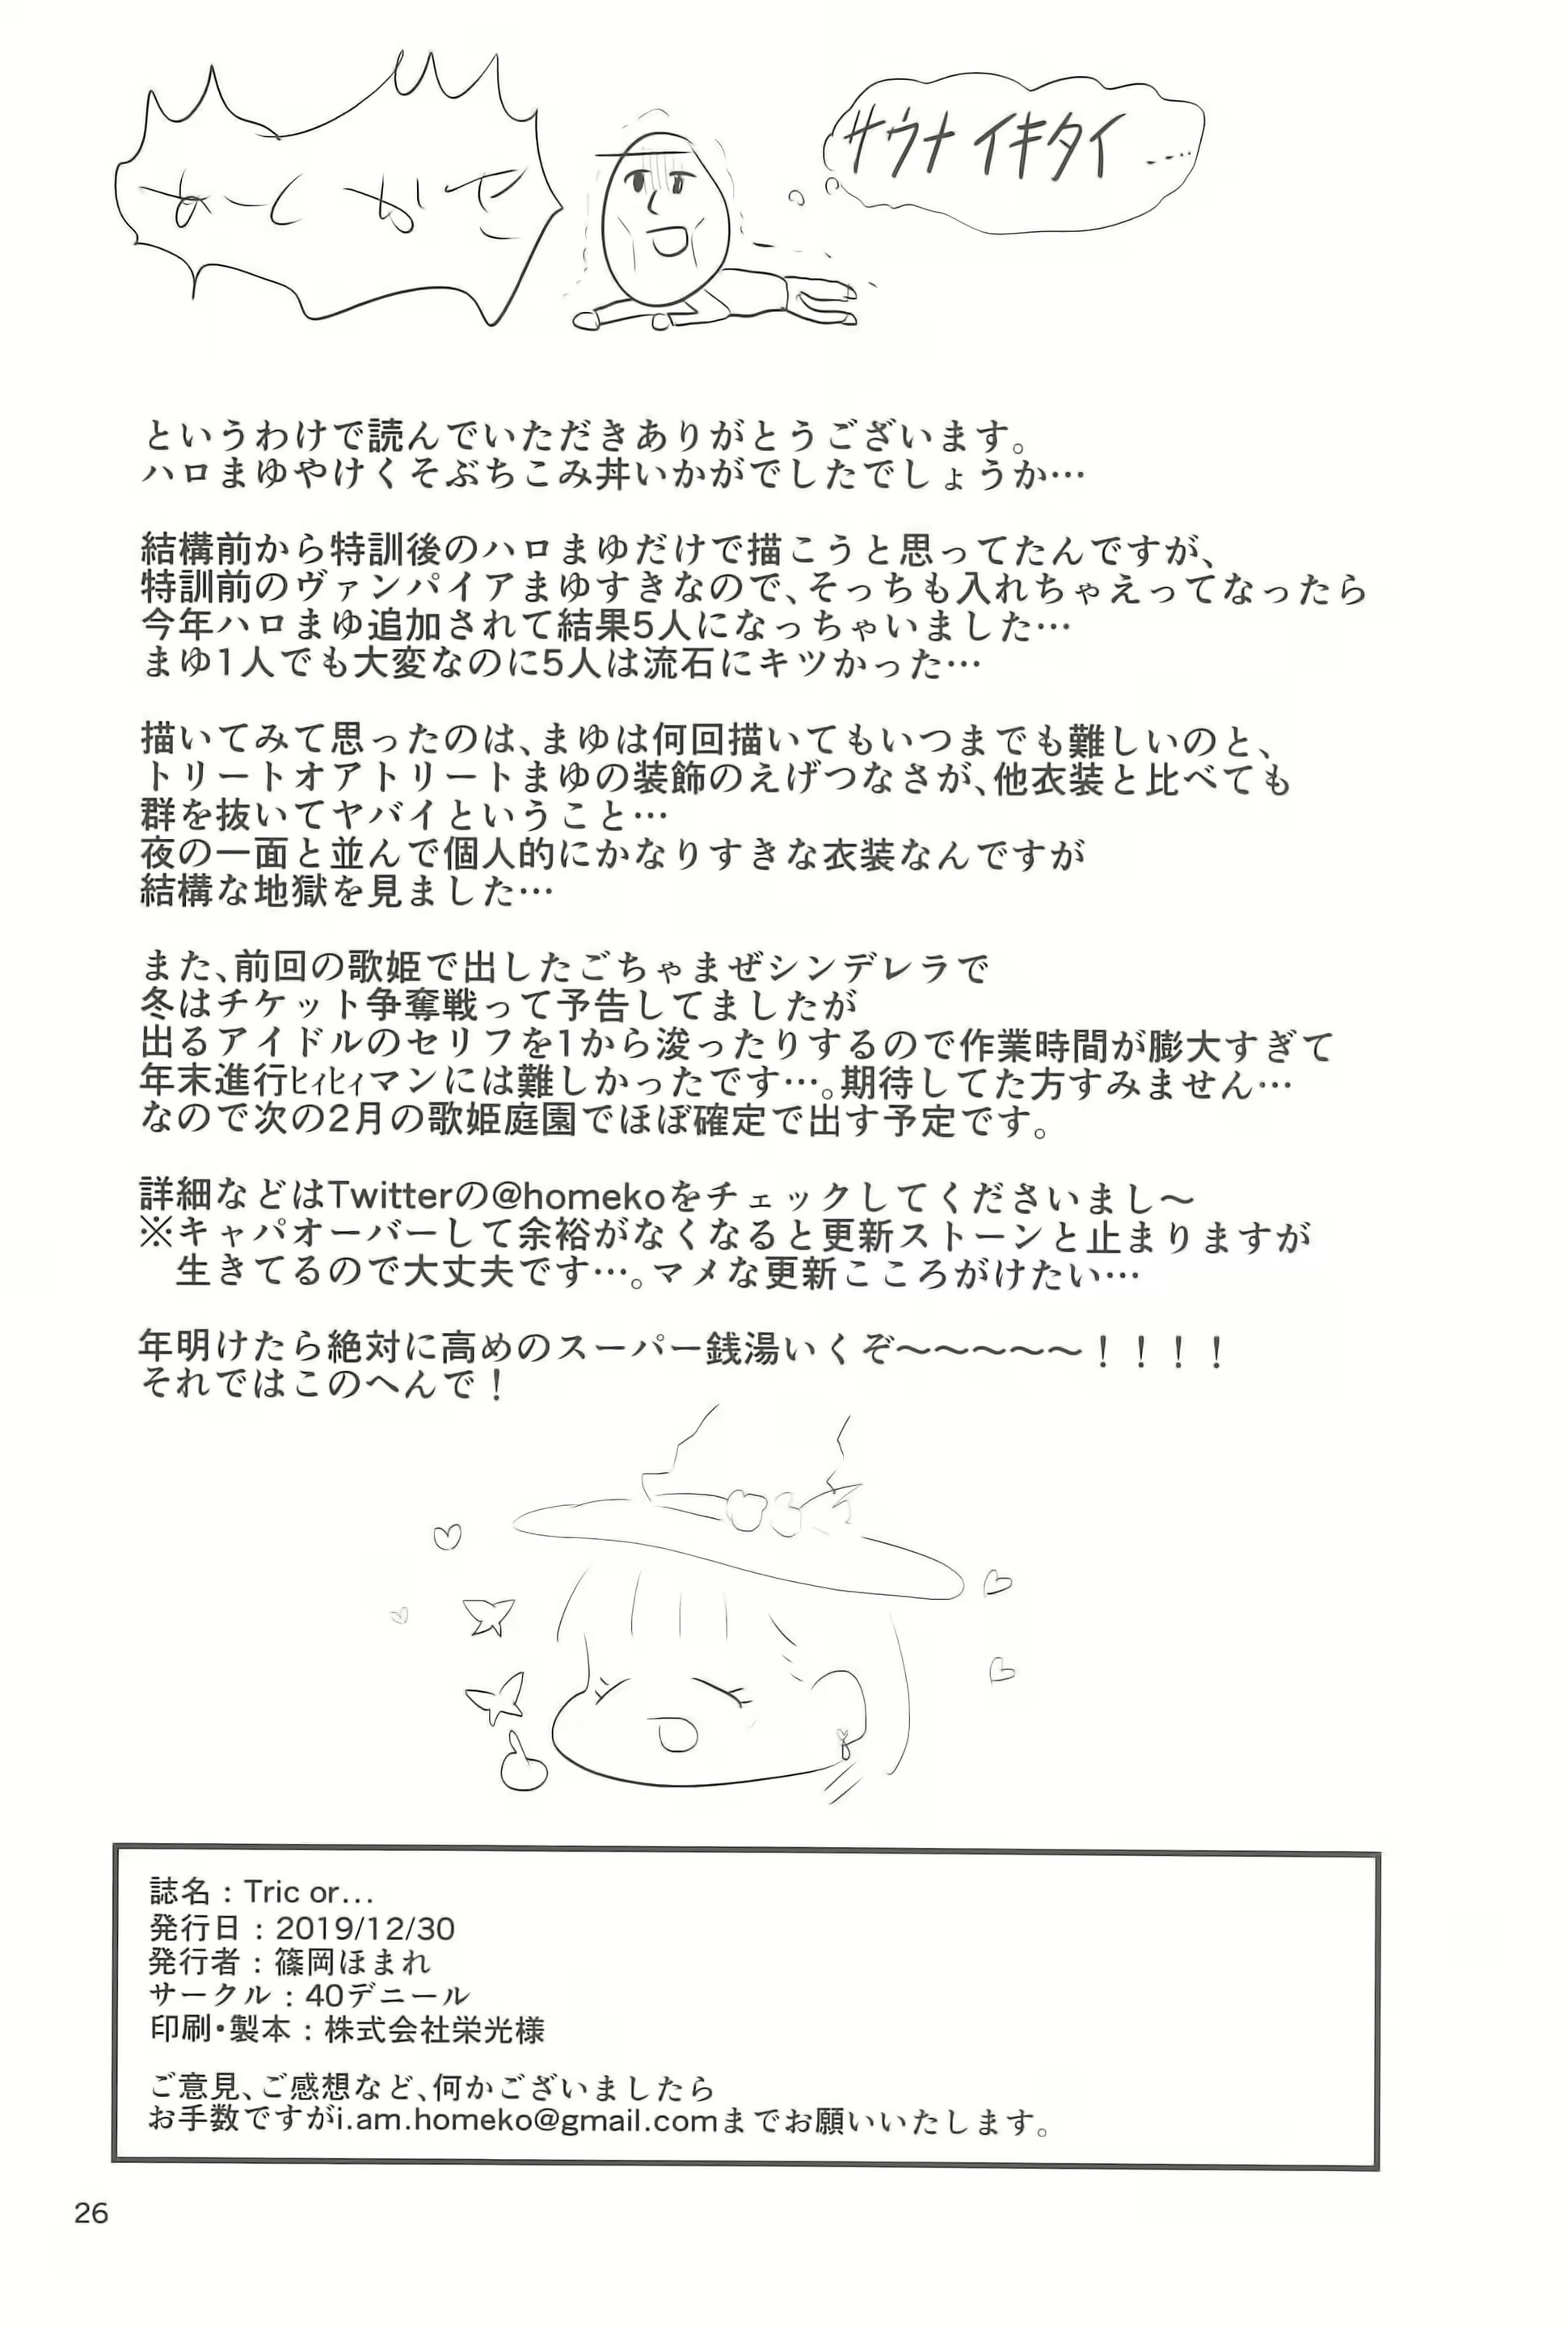 あとがき
サウナ イキタイ ……
というわけで読んでいただきありがとうございます。
ハロまゆやけくそぶちこみ丼いかがでしたでしょうか…
結構前から特訓後のハロまゆだけで描こうと思ってたんですが、
特訓前のヴァンパイアまゆすきなので、そっちも入れちゃえってなったら
今年ハロまゆ追加されて結果5人になっちゃいました…
まゆ1人でも大変なのに5人は流石にキツかった…
描いてみて思ったのは、まゆは何回描いてもいつまでも難しいのと、
トリートオアトリートまゆの装飾のえげつなさが、他衣装と比べても
群を抜いてヤバイということ…
夜の一面と並んで個人的にかなりすきな衣装なんですが
結構な地獄を見ました…
また、前回の歌姫で出したごちゃまぜシンデレラで
冬はチケット争奪戦って予告してましたが
出るアイドルのセリフを1から浚ったりするので作業時間が膨大すぎて
年末進行ﾋｨﾋｨマンには難しかったです…。期待してた方すみません…
なので次の2月の歌姫庭園でほぼ確定で出す予定です。
詳細などはTwitterの@homekoをチェックしてくださいまし～
※キャパオーバーして余裕がなくなると更新ストーンと止まりますが
生きてるので大丈夫です…。マメな更新こころがけたい…
年明けたら絶対に高めのスーパー銭湯いくぞ～～～～～！！！！
それではこのへんで！
誌名：Tric or…
発行日：2019/12/30
発行者：篠岡ほまれ
サークル：40デニール
印刷・製本：株式会社栄光様
ご意見、ご感想など、何かございましたら
お手数ですがi.am.homeko@gmail.comまでお願いいたします。
26